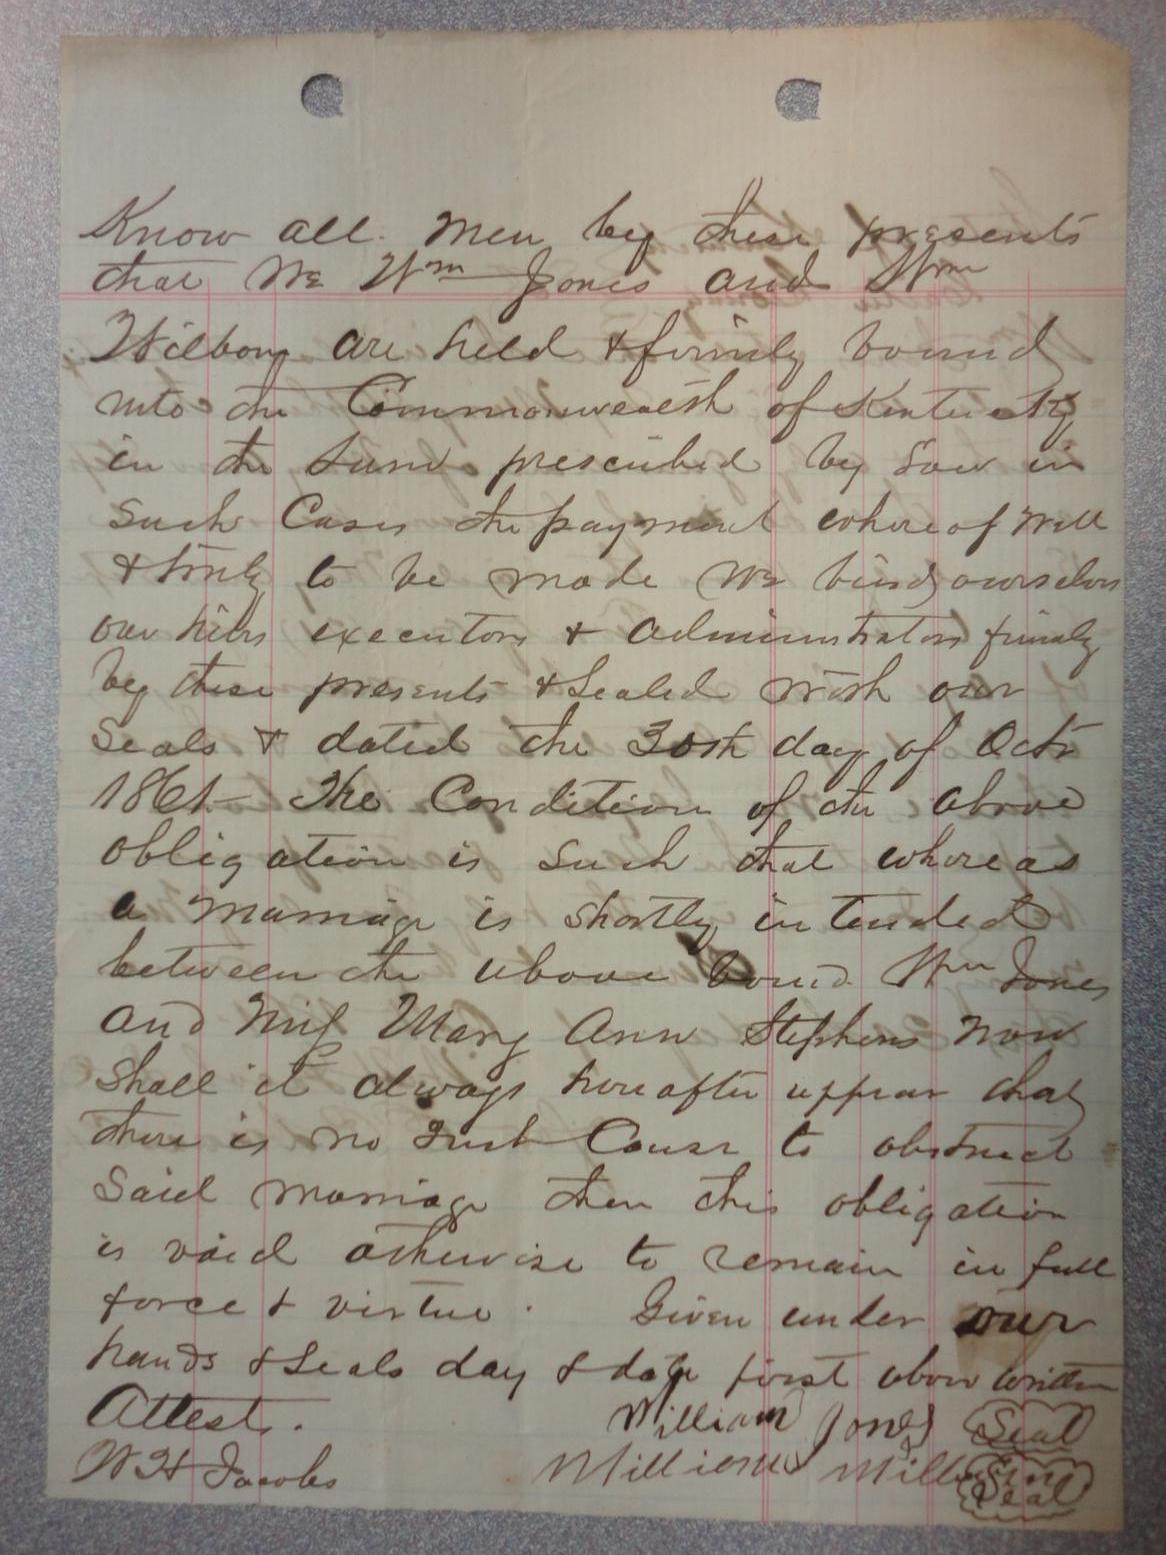 Know all men by these presents
that We Wm Jones and Wm
Wilborn are held & firmly bound
unto the Commonwealth of Kentucky
in the sum prescribed by Law in
such Cases the payment whereof Well
& truly to be made We bind ourselves
our heirs executors & administrators firmly
by these presents & Sealed With our
Seals & dated the 30th day of Octr
1861 The Condition of the above
obligation is such that whereas
a marriage is shortly intended
between the above bound Wm Jones
and Miss Mary Ann Stephens Now
Shall it always hereafter appear that
there is no Just Cause to obstruct
Said marriage then this obligation
is void otherwise to remain in full
force & virtue. Given under our
hands & Seals day & date first above written
Attest. William Jones Seal
W H Jacobs William Seal